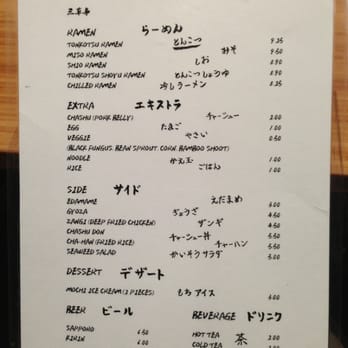 RAMEN らーめん
TONKOTSU RAMEN とんこつ 9.25
MISO RAMEN みそ 9.50
SHIO RAMEN しお 8.90
TONKOTSU SHOYU RAMEN とんこつしょうゆ 8.90
CHILLED RAMEN 冷しラーメン 9.25
EXTRA エキストラ
CHASHU (PORK BELLY) チャーシュー 2.00
EGG たまご 1.00
VEGGIE やさい 0.50
(BLACK FUNGUS, BEAN SPROUT, CORN, BAMBOO SHOOT)
NOODLE かえ玉 1.00
RICE ごはん 1.00
SIDE サイド
EDAMAME えだまめ
GYOZA ぎょうざ 4.50
ZANGI (DEEP FRIED CHICKEN) ザンギ 4.50
CHASHU DON チャーシュー丼 3.50
CHA-HAN (FRIED RICE) チャーハン 5.50
SEAWEED SALAD かいそうサラダ 3.50
DESSERT デザート
MOCHI ICE CREAM (2 PIECES) もちアイス 6.00
BEER ビール
SAPPORO 6.50
KIRIN 6.00
BEVERAGE ドリンク
HOT TEA 茶 2.00
COLD TEA 2.00